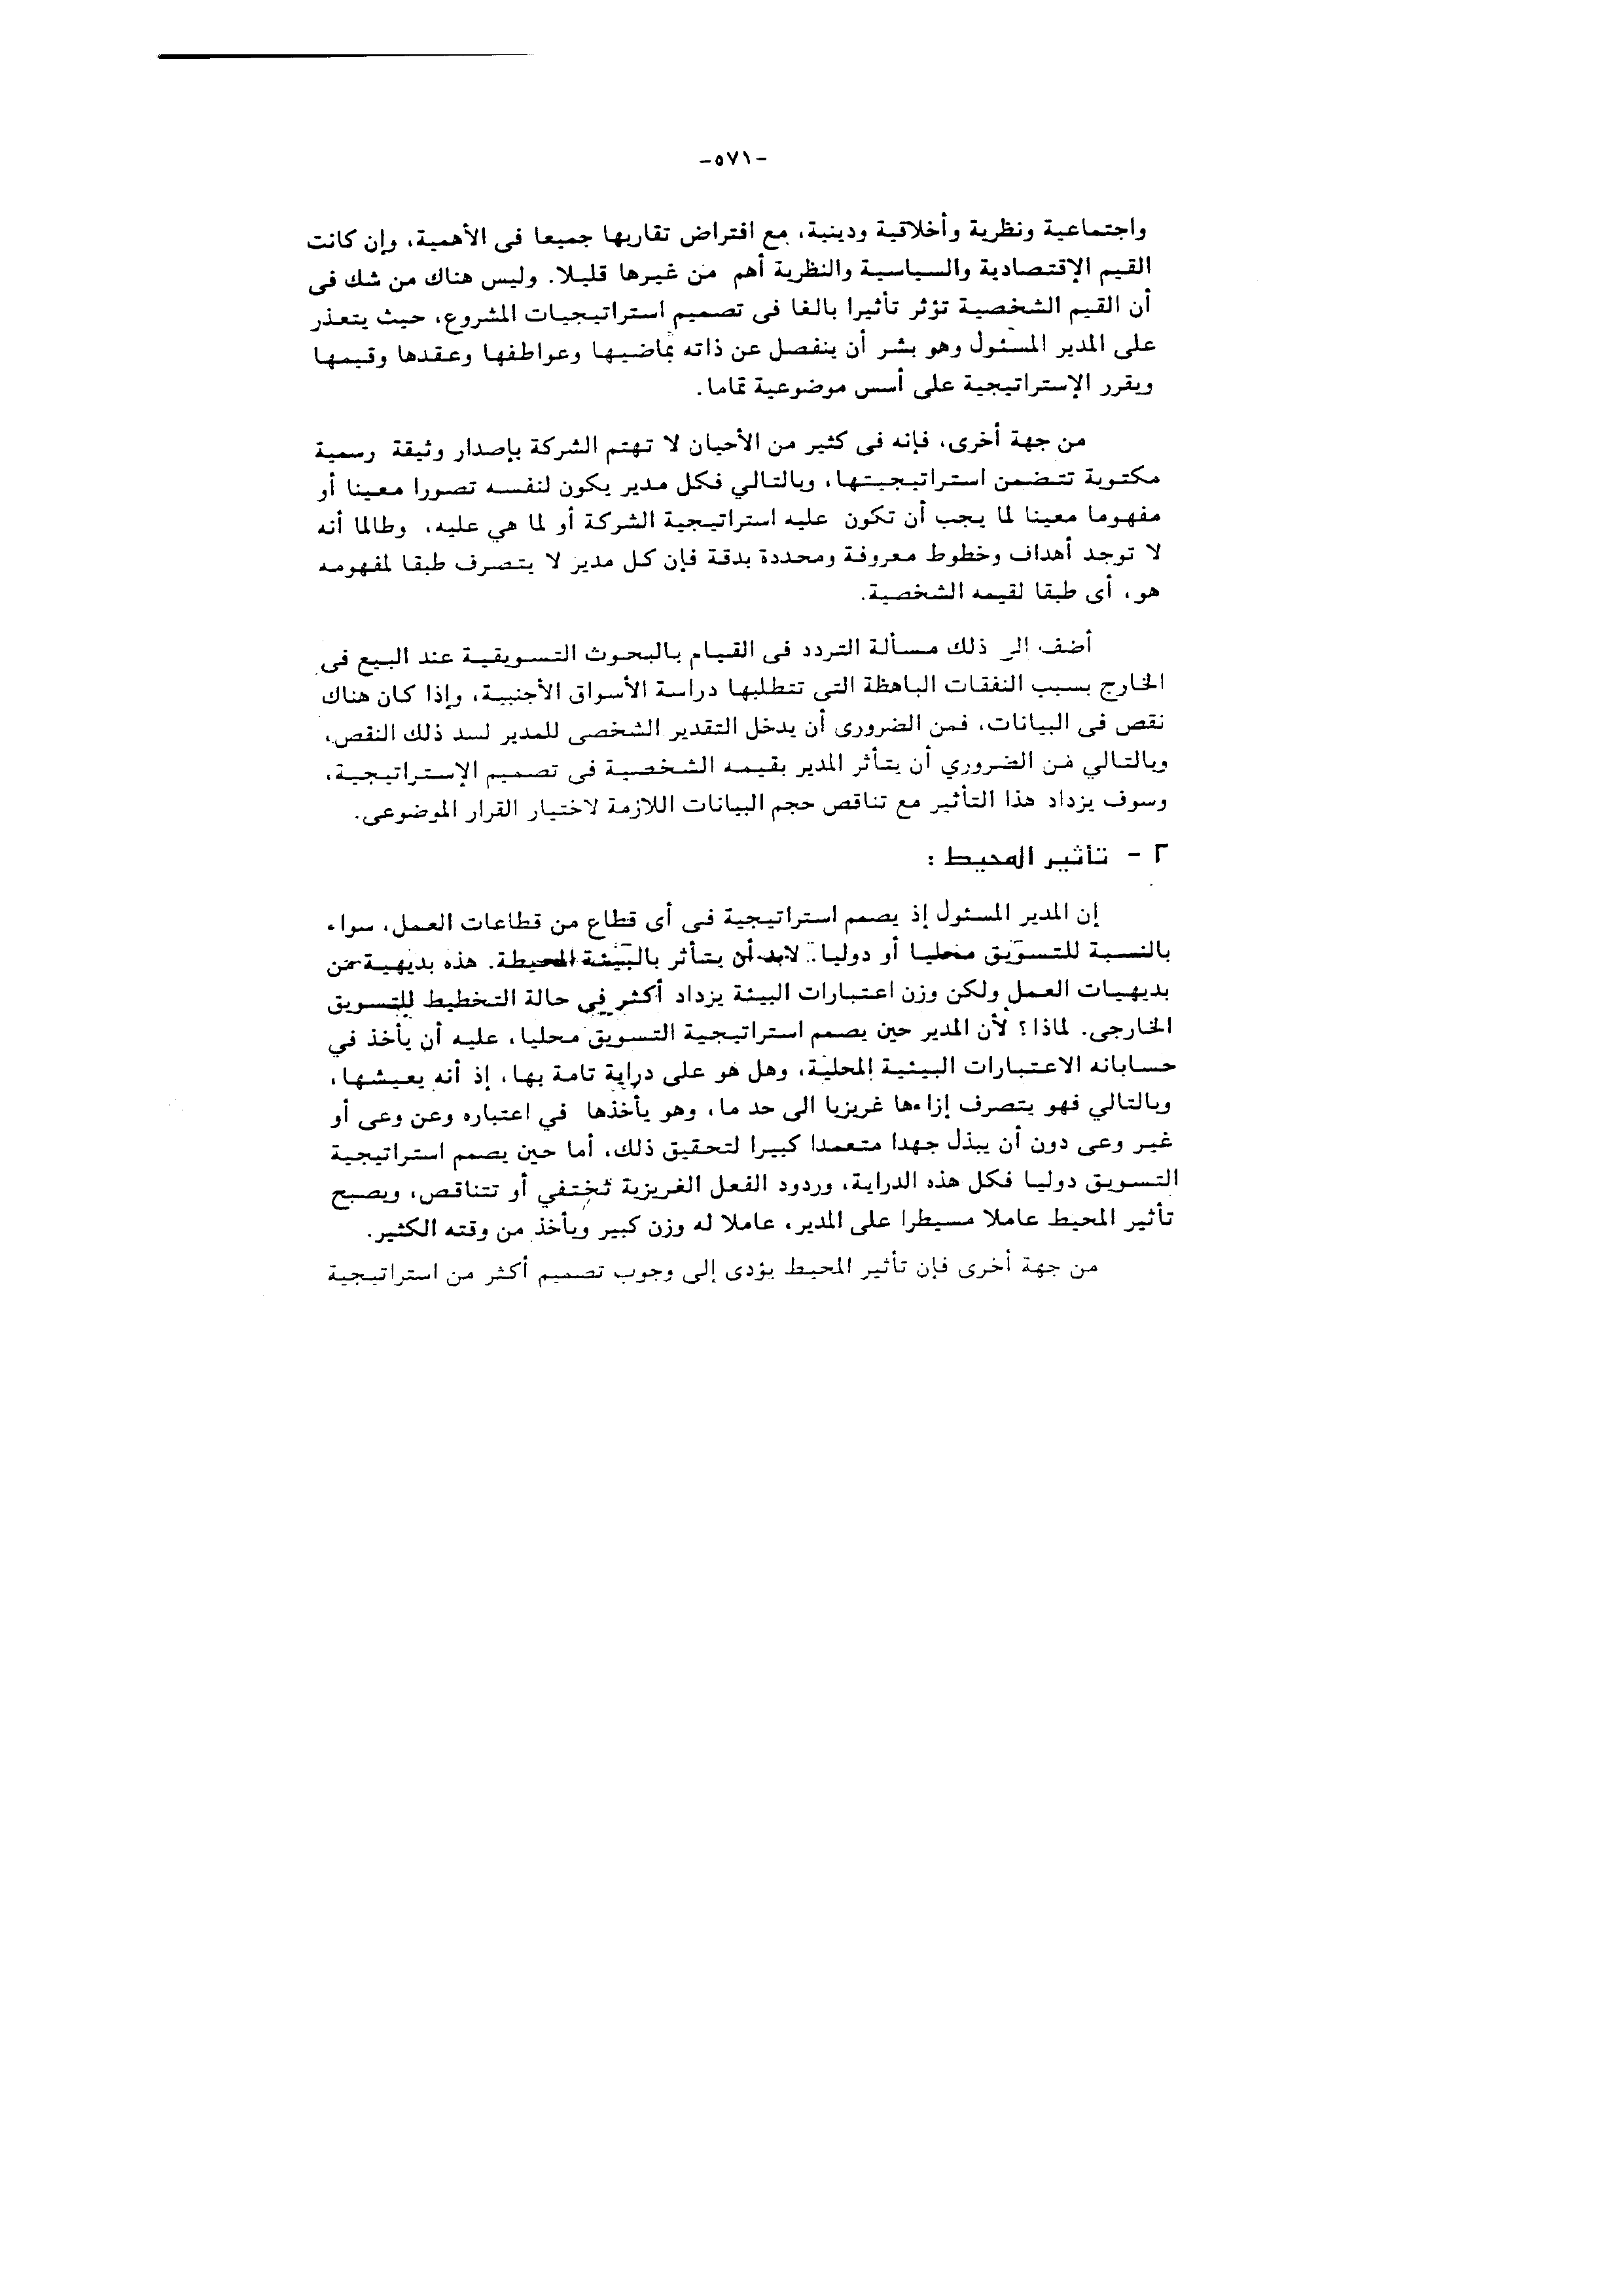 -٥٧١-
واجتماعية ونظرية وأخلاقية ودينية، مع افتراض تقاربها جميعا فى الأهمية، وإن كانت
القيم الإقتصادية والسياسية والنظرية أهم من غيرها قليلا. وليس هناك من شك فى
أن القيم الشخصية تؤثر تأثيرا بالغا فى تصميم استراتيجيات المشروع، حيث يتعذر
على المدير المسئول وهو بشر أن ينفصل عن ذاته بماضيها وعواطفها وعقدها وقيمها
ويقرر الإستراتيجية على أسس موضوعية تماما.
من جهة أخرى، فإنه فى كثير من الأحيان لا تهتم الشركة بإصدار وثيقة رسمية
مكتوبة تتضمن استراتيجيتها، وبالتالي فكل مدير يكون لنفسه تصورا معينا أو
مفهوما معينا لما يجب أن تكون عليه استراتيجية الشركة أو لما هي عليه، وطالما أنه
لا توجد أهداف وخطوط معروفة ومحددة بدقة فإن كل مدير لا يتصرف طبقا لمفهومه
هو، أى طبقا لقيمه الشخصية.
أضف الى ذلك مسألة التردد فى القيام بالبحوث التسويقية عند البيع فى
الخارج بسبب النفقات الباهظة التى تتطلبها دراسة الأسواق الأجنبية، وإذا كان هناك
نقص فى البيانات، فمن الضرورى أن يدخل التقدير الشخصى للمدير لسد ذلك النقص،
وبالتالي فمن الضروري أن يتأثر المدير بقيمه الشخصية فى تصميم الإستراتيجية،
وسوف يزداد هذا التأثير مع تناقص حجم البيانات اللازمة لاختيار القرار الموضوعى.
٢ - تأثير المحيط :
إن المدير المسئول إذ يصمم استراتيجية فى أى قطاع من قطاعات العمل، سواء
بالنسبة للتسويق محليا أو دوليا.. لابد أن يتأثر بالبيئة المحيطة. هذه بديهية من
بديهيات العمل ولكن وزن اعتبارات البيئة يزداد أكثر في حالة التخطيط للتسويق
الخارجى. لماذا؟ لأن المدير حين يصمم استراتيجية التسويق محليا، عليه أن يأخذ في
حساباته الاعتبارات البيئية المحلية، وهل هو على دراية تامة بها، إذ أنه يعيشها،
وبالتالي فهو يتصرف إزاءها غريزيا الى حد ما، وهو يأخذها في اعتباره وعن وعى أو
غير وعى دون أن يبذل جهدا متعمدا كبيرا لتحقيق ذلك، أما حين يصمم استراتيجية
التسويق دوليا فكل هذه الدراية، وردود الفعل الغريزية تختفي أو تتناقص، ويصبح
تأثير المحيط عاملا مسيطرا على المدير، عاملا له وزن كبير ويأخذ من وقته الكثير.
من جهة أخرى فإن تأثير المحيط يؤدى إلى وجوب تصميم أكثر من استراتيجية